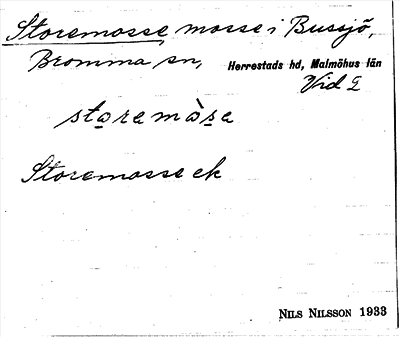 Storemosse, mosse i Bussjö,
Bromma sn, Herrestads hd, Malmöhus län
Vid g
storemòse
Storemosse ek
NILS NILSSON 1933